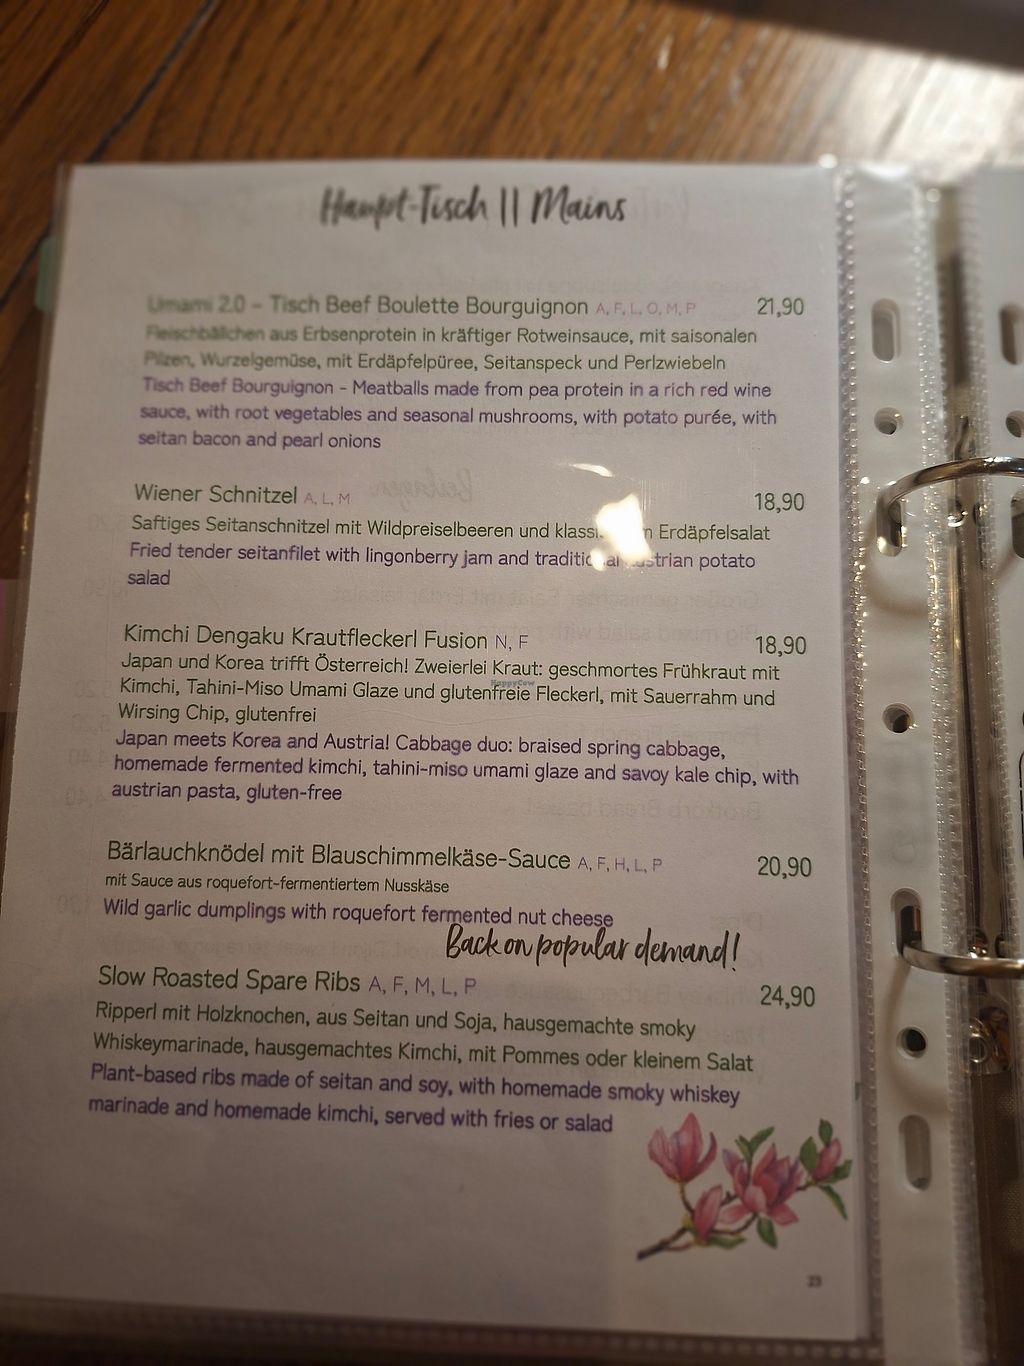 Haupt-Tisch || Mains
Umami 2.0 – Tisch Beef Boulette Bourguignon A, F, L, O, M, P 21,90
Fleischbällchen aus Erbsenprotein in kräftiger Rotweinsauce, mit saisonalen
Pilzen, Wurzelgemüse, mit Erdäpfelpüree, Seitanspeck und Perlzwiebeln
Tisch Beef Bourguignon - Meatballs made from pea protein in a rich red wine
sauce, with root vegetables and seasonal mushrooms, with potato purée, with
seitan bacon and pearl onions
Wiener Schnitzel A, L, M 18,90
Saftiges Seitanschnitzel mit Wildpreiselbeeren und Erdäpfelsalat
Fried tender seitanfilet with lingonberry jam and traditional Austrian potato
salad
Kimchi Dengaku Krautfleckerl Fusion N, F 18,90
Japan und Korea trifft Österreich! Zweierlei Kraut: geschmortes Frühkraut mit
Kimchi, Tahini-Miso Umami Glaze und glutenfreie Fleckerl, mit Sauerrahm und
HappyCow
Wirsing Chip, glutenfrei
Japan meets Korea and Austria! Cabbage duo: braised spring cabbage,
homemade fermented kimchi, tahini-miso umami glaze and savoy kale chip, with
austrian pasta, gluten-free
Bärlauchknödel mit Blauschimmelkäse-Sauce A, F, H, L, P 20,90
mit Sauce aus roquefort-fermentiertem Nusskäse
Wild garlic dumplings with roquefort fermented nut cheese
Back on popular demand!
Slow Roasted Spare Ribs A, F, M, L, P 24,90
Ripperl mit Holzknochen, aus Seitan und Soja, hausgemachte smoky
Whiskeymarinade, hausgemachtes Kimchi, mit Pommes oder kleinem Salat
Plant-based ribs made of seitan and soy, with homemade smoky whiskey
marinade and homemade kimchi, served with fries or salad
23